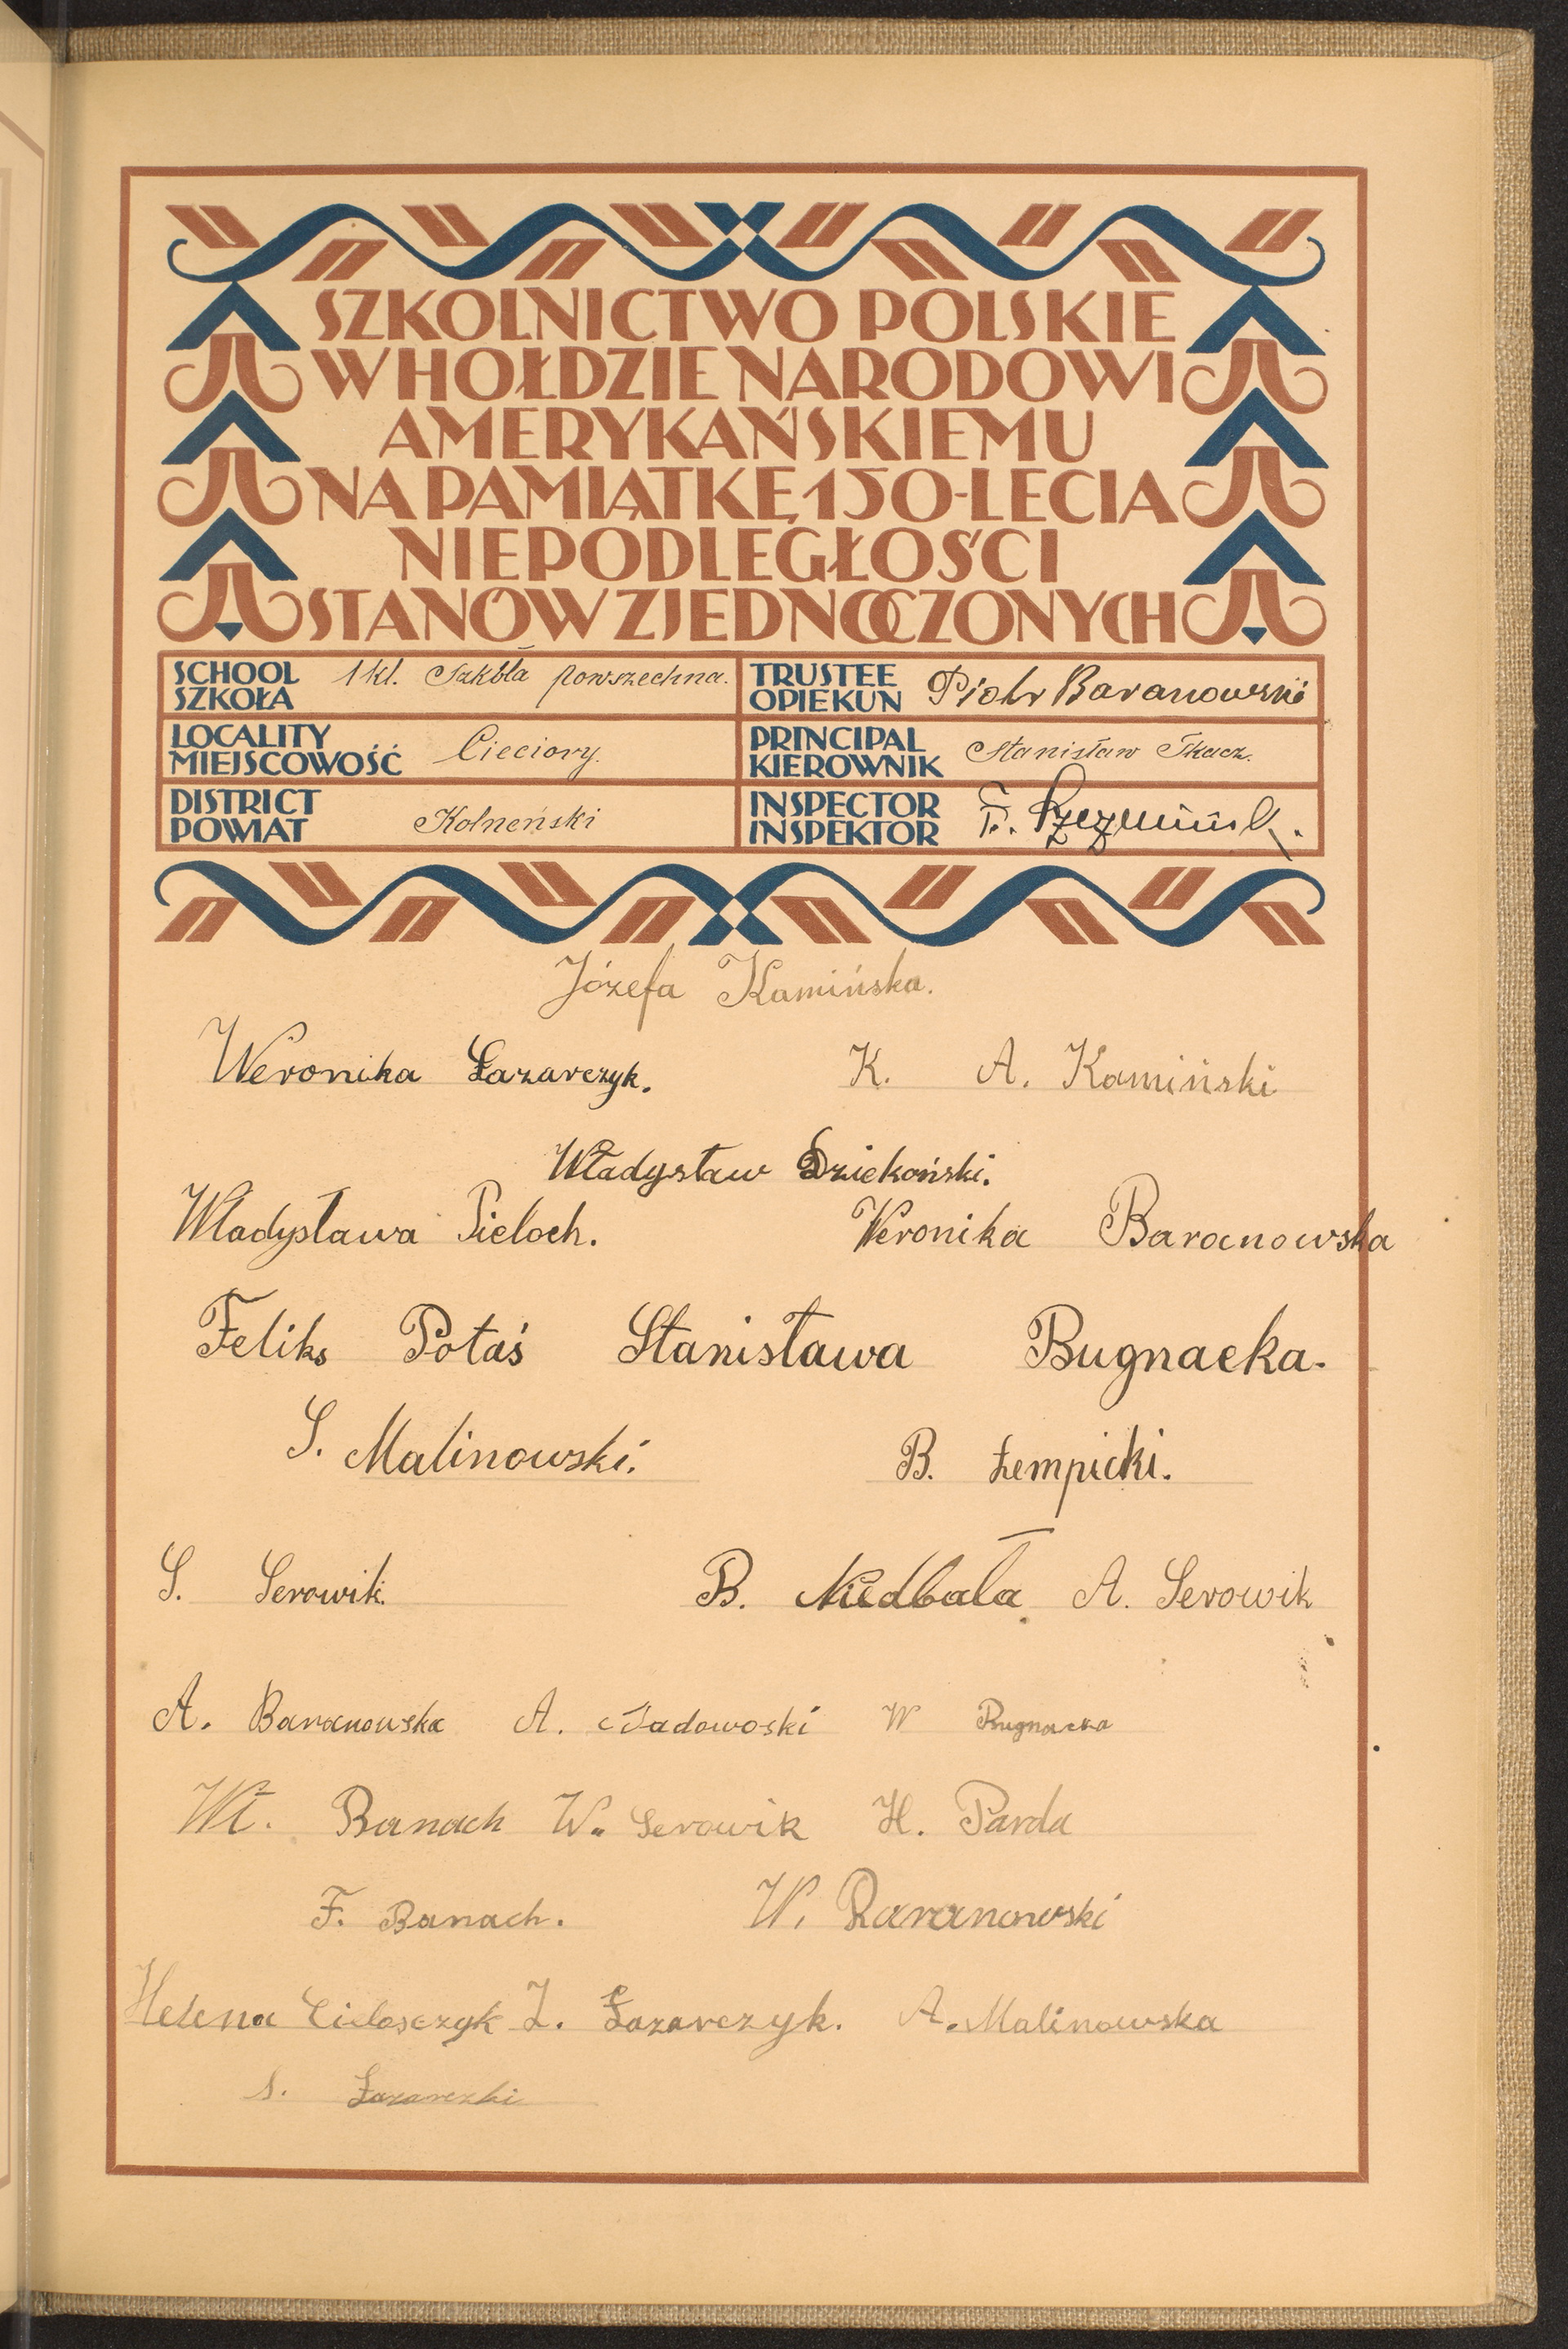 SZKOLNICTWO POLSKIE
W HOŁDZIE NARODOWI
AMERYKAŃSKIEMU
NA PAMIĄTKĘ 150-LECIA
NIEPODLEGŁOŚCI
STANÓW ZJEDNOCZONYCH
SCHOOL SZKOŁA 1 kl. Szkóła powszechna.
TRUSTEE OPIEKUN Piotr Baranowski
LOCALITY MIEJSCOWOŚĆ Cieciory.
PRINCIPAL KIEROWNIK Stanisław Tkacz.
DISTRICT POWIAT Kolneński
INSPECTOR INSPEKTOR F.
Józefa Kamińska.
Weronika Łazarczyk. K. A. Kamiński
Władysław Dziekoński.
Władysława Pieloch. Weronika Baranowska
Feliks Potaś Stanisława Bugnacka.
S. Malinowski. B. Łempicki.
S. Serowik. B. Niedbała A. Serowik
A. Baranowska A. Sadowoski W Bugnacka
Wł. Banach W. Serowik H. Parda
F. Banach. W. Baranowski
Helena Z. Łazarczyk. A. Malinowska
S.